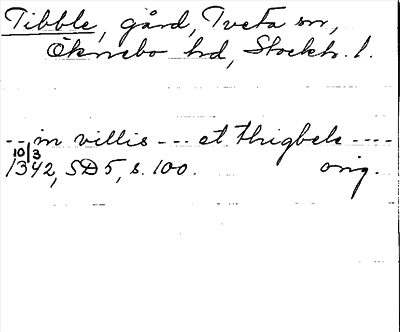 Tibble, gård, Tveta sn,
Öknebo hd, Stockh. l.
-- in villis --- et thigbele ----
10/3
1342, SD 5, s. 100. orig.